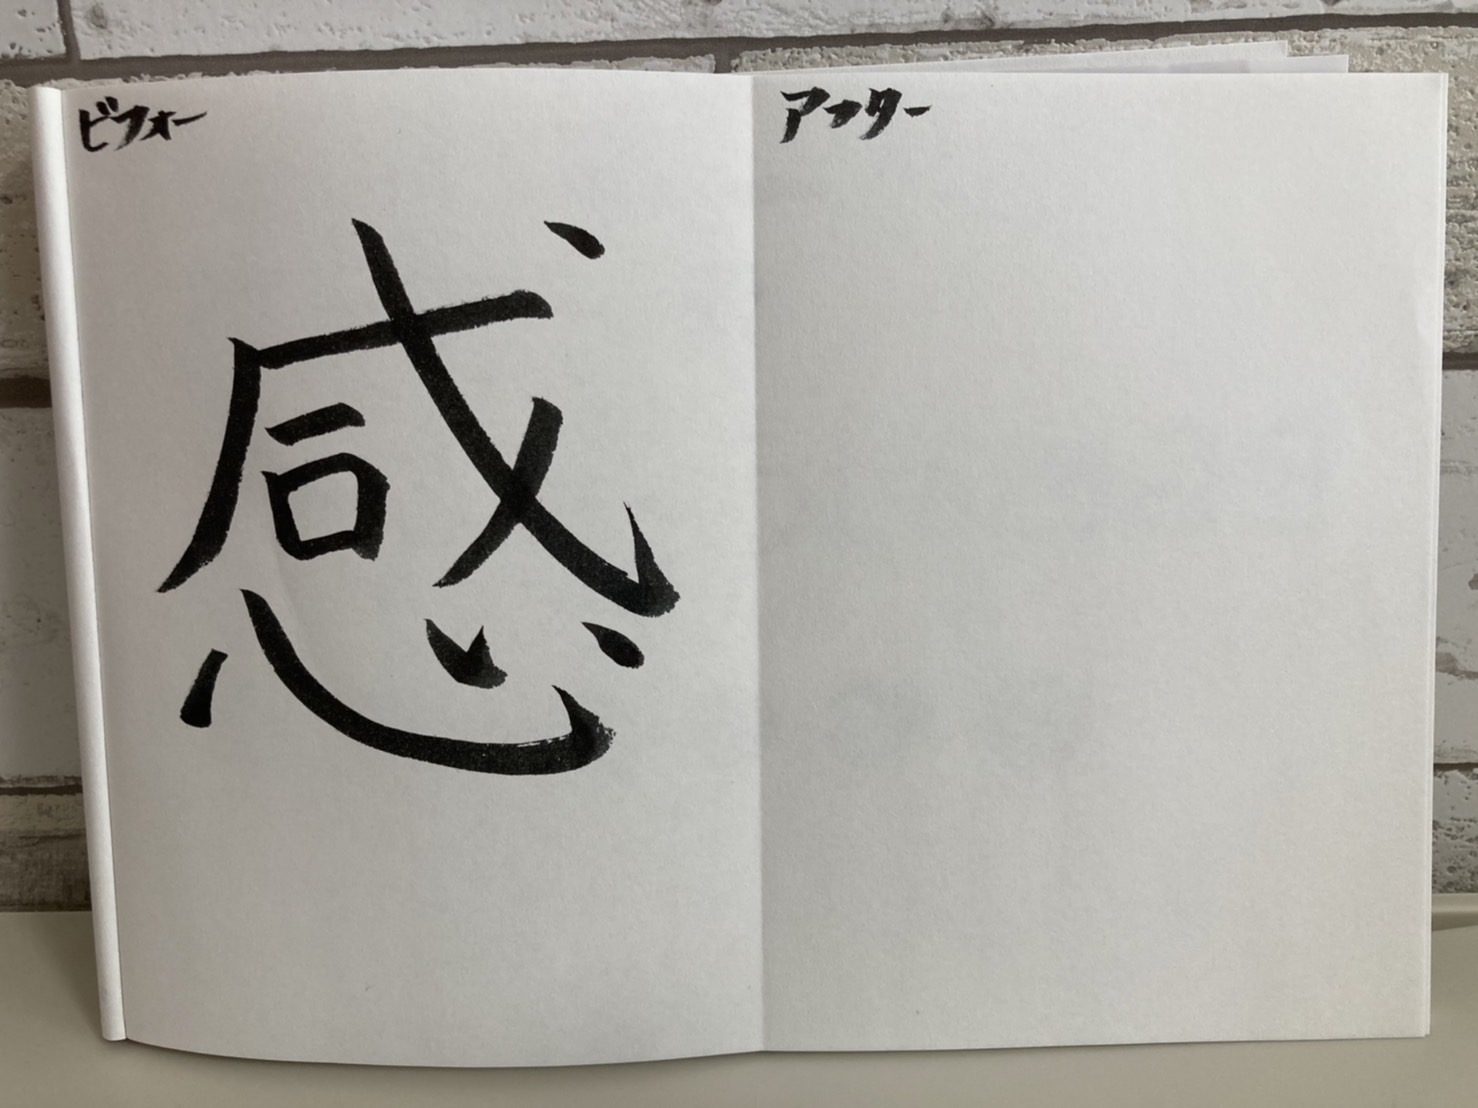 ビフォー
アフター
感